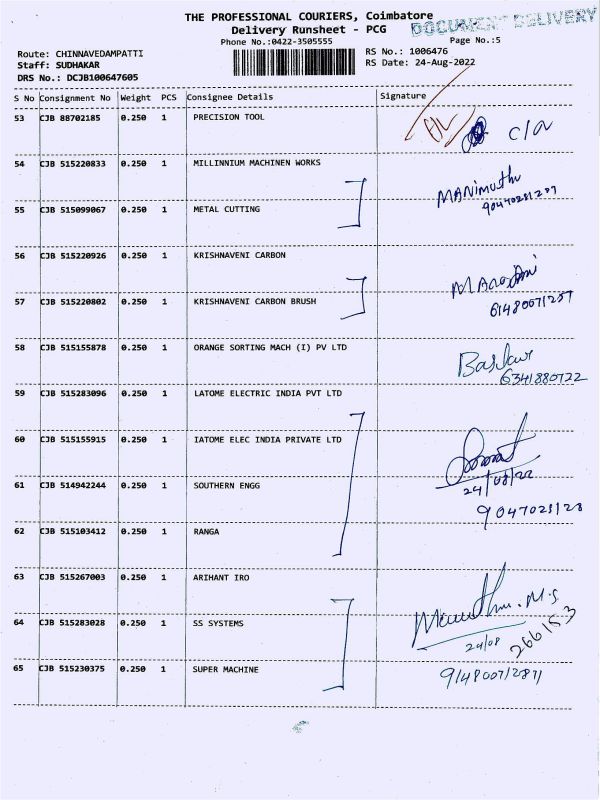 THE PROFESSIONAL COURIERS, Coimbatore
DOCUMENT DELIVERY
Delivery Runsheet - PCG
Phone No.:0422-3505555
Page No.:5
Route: CHINNAVEDAMPATTI
RS No.: 1006476
Staff: SUDHAKAR
RS Date: 24-Aug-2022
DRS No.: DCJB100647605
S No Consignment No Weight PCS Consignee Details Signature
53 CJB 88702185 0.250 1 PRECISION TOOL
54 CJB 515220833 0.250 1 MILLINNIUM MACHINEN WORKS
MANimuthu
90470281207
55 CJB 515099067 0.250 1 METAL CUTTING
56 CJB 515220926 0.250 1 KRISHNAVENI CARBON
57 CJB 515220802 0.250 1 KRISHNAVENI CARBON BRUSH
61480071257
58 CJB 515155878 0.250 1 ORANGE SORTING MACH (I) PV LTD
Baskar
6341880722
59 CJB 515283096 0.250 1 LATOME ELECTRIC INDIA PVT LTD
60 CJB 515155915 0.250 1 IATOME ELEC INDIA PRIVATE LTD
61 CJB 514942244 0.250 1 SOUTHERN ENGG
24/08/22
9047028128
62 CJB 515103412 0.250 1 RANGA
63 CJB 515267003 0.250 1 ARIHANT IRO
64 CJB 515283028 0.250 1 SS SYSTEMS
24/08
266153
65 CJB 515230375 0.250 1 SUPER MACHINE
914800712871